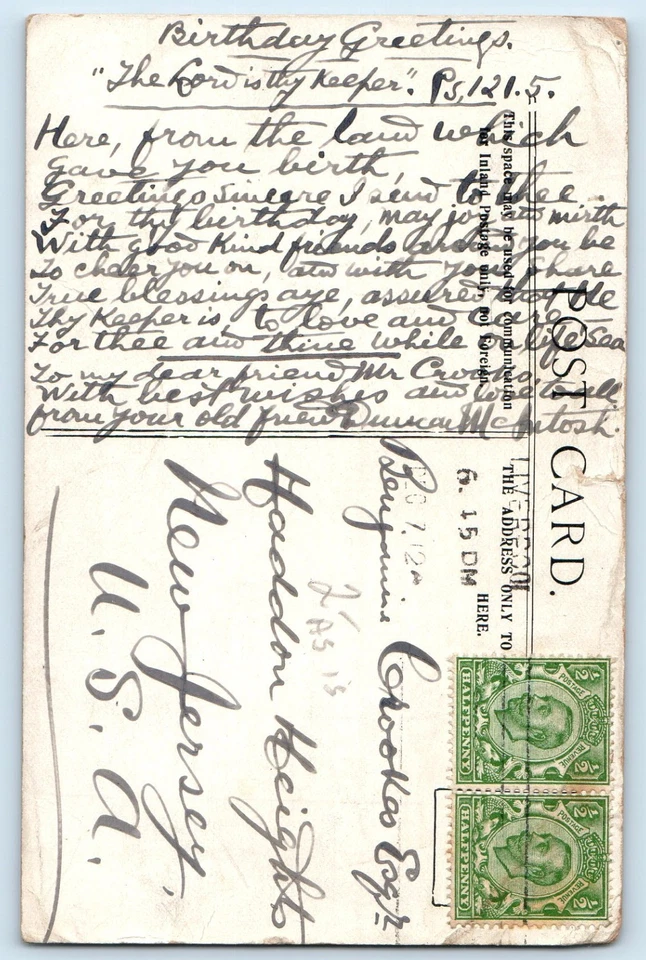 Birthday Greetings.
"The Lord is thy Keeper". Ps, 121.5.
Here, from the land which
gave you birth,
Greetings Sincere I send to thee
For thy birthday, may joy and mirth
With good Kind friends around you be
To cheer you on, and with your Share
True blessings aye, assured that He
Thy Keeper is, to love and care
For thee and thine while on life's Sea
To my dear friend Mr Crookes,
With best wishes and love to all
from your old friend Duncan McIntosh.
POST CARD.
This space may be used for communication
for Inland Postage only, not Foreign.
THE ADDRESS ONLY TO
HERE.
LIVERPOOL
6.15 PM
7. 12
Benjamine Crookes Esqr
Haddon Heights
New Jersey,
U. S. A.
As is
POSTAGE
REVENUE
1/2
1/2
HALFPENNY
POSTAGE
REVENUE
1/2
1/2
HALFPENNY